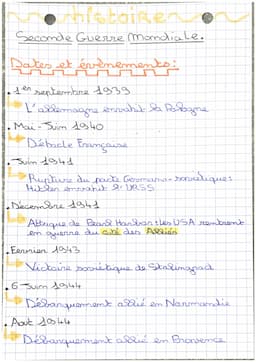 histoire
Seconde Guerre Mondiale.
Dates et évènements :
. 1er septembre 1939
L'allemagne envahit la Pologne
. Mai - Juin 1940
Débacle Française
. Juin 1941
Rupture du pacte Germano - soviétiques
Hitler envahit l'URSS
. Décembre 1941
Attaque de Pearl Harbor : les USA rentrent
en guerre du côté des Alliés
. Fevrier 1943
Victoire soviétique de Stalingrad
. 6 Juin 1944
Débarquement allié en Normandie
. Aout 1944
Débarquement allié en Provence